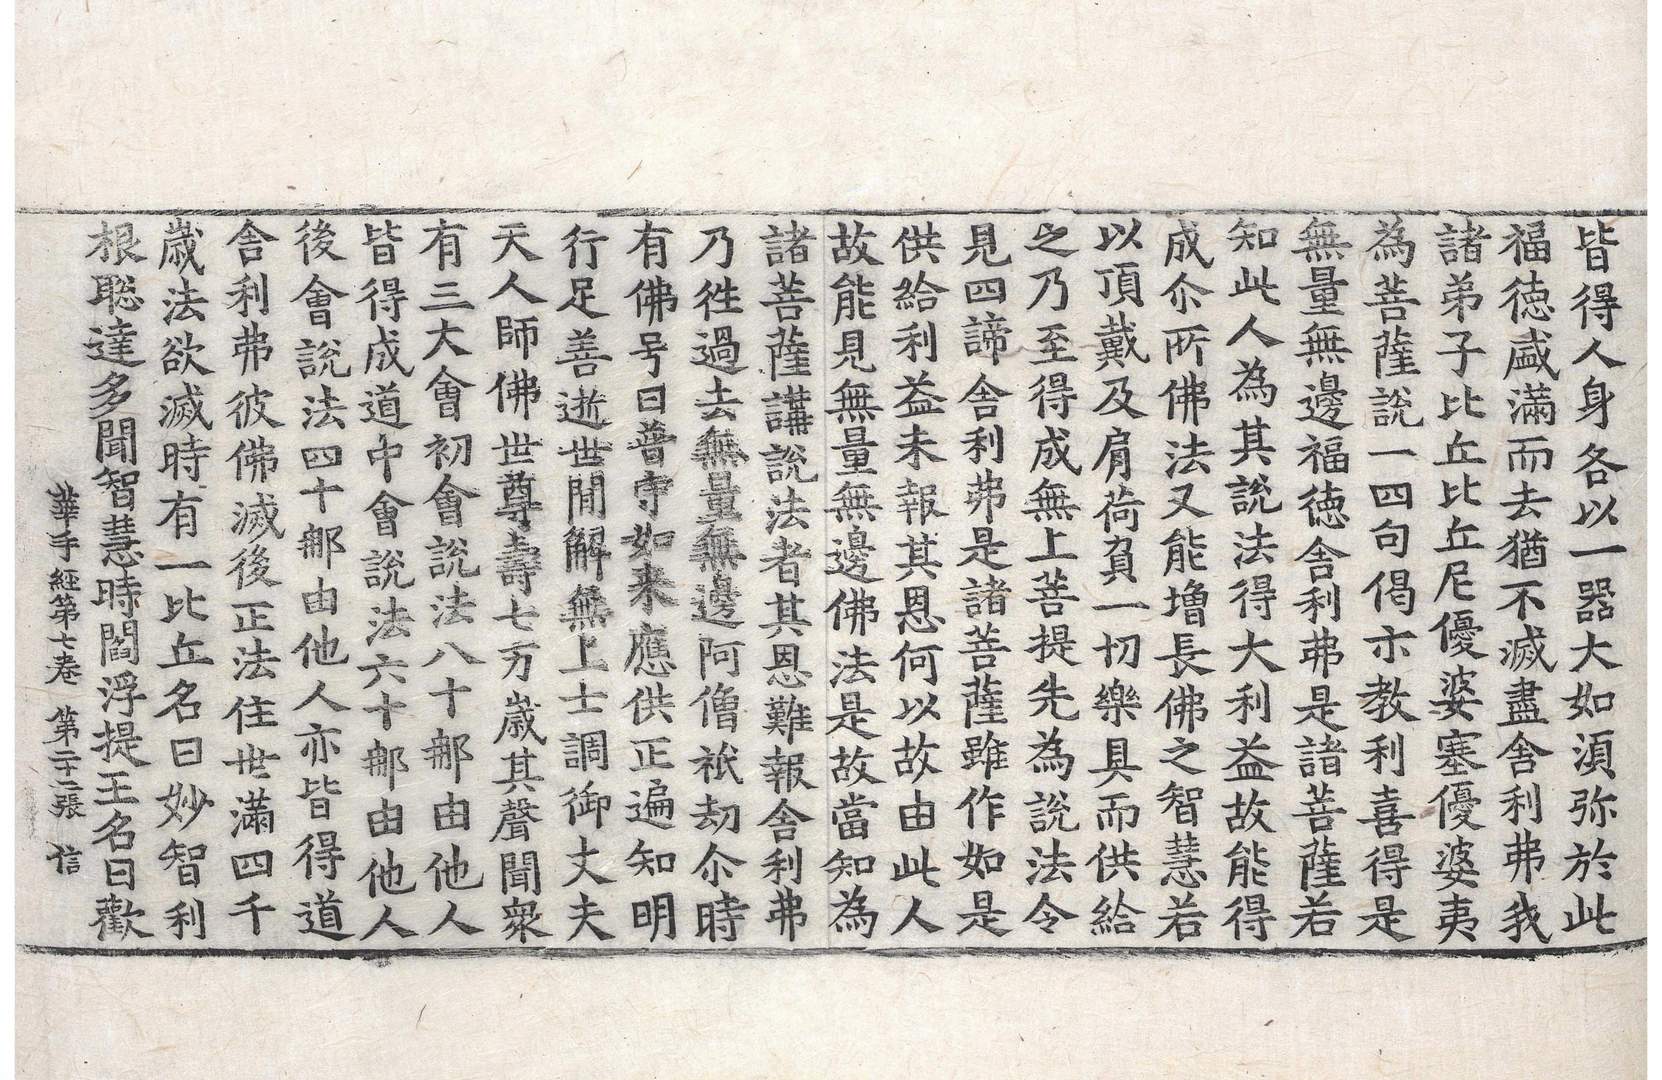 皆得人身各以一器大如湏弥於此
福徳盛滿而去猶不滅盡舎利弗我
諸弟子比丘比丘尼優婆塞優婆夷
為菩薩說一四句偈亦教利喜得是
無量無邊福徳舎利弗是諸菩薩若
知此人為其說法得大利益故能得
成尒所佛法又能増長佛之智慧若
以頂戴及肩荷負一切樂具而供給
之乃至得成無上菩提先為說法令
見四諦舎利弗是諸菩薩雖作如是
供給利益未報其恩何以故由此人
故能見無量無邊佛法是故當知為
諸菩薩講說法者其恩難報舎利弗
乃徃過去無量無邊阿僧祇劫尒時
有佛号曰普守如来應供正遍知明
行足善逝世閒解無上士調御丈夫
天人師佛世尊壽七万歲其聲聞衆
有三大會初會說法八十𨙻由他人
皆得成道中會說法六十𨙻由他人
後會說法四十𨙻由他人亦皆得道
舎利弗彼佛滅後正法住世滿四千
歲法欲滅時有一比丘名曰妙智利
根聡達多聞智慧時閻浮提王名曰歡
華手経第七卷　第二十二張　信